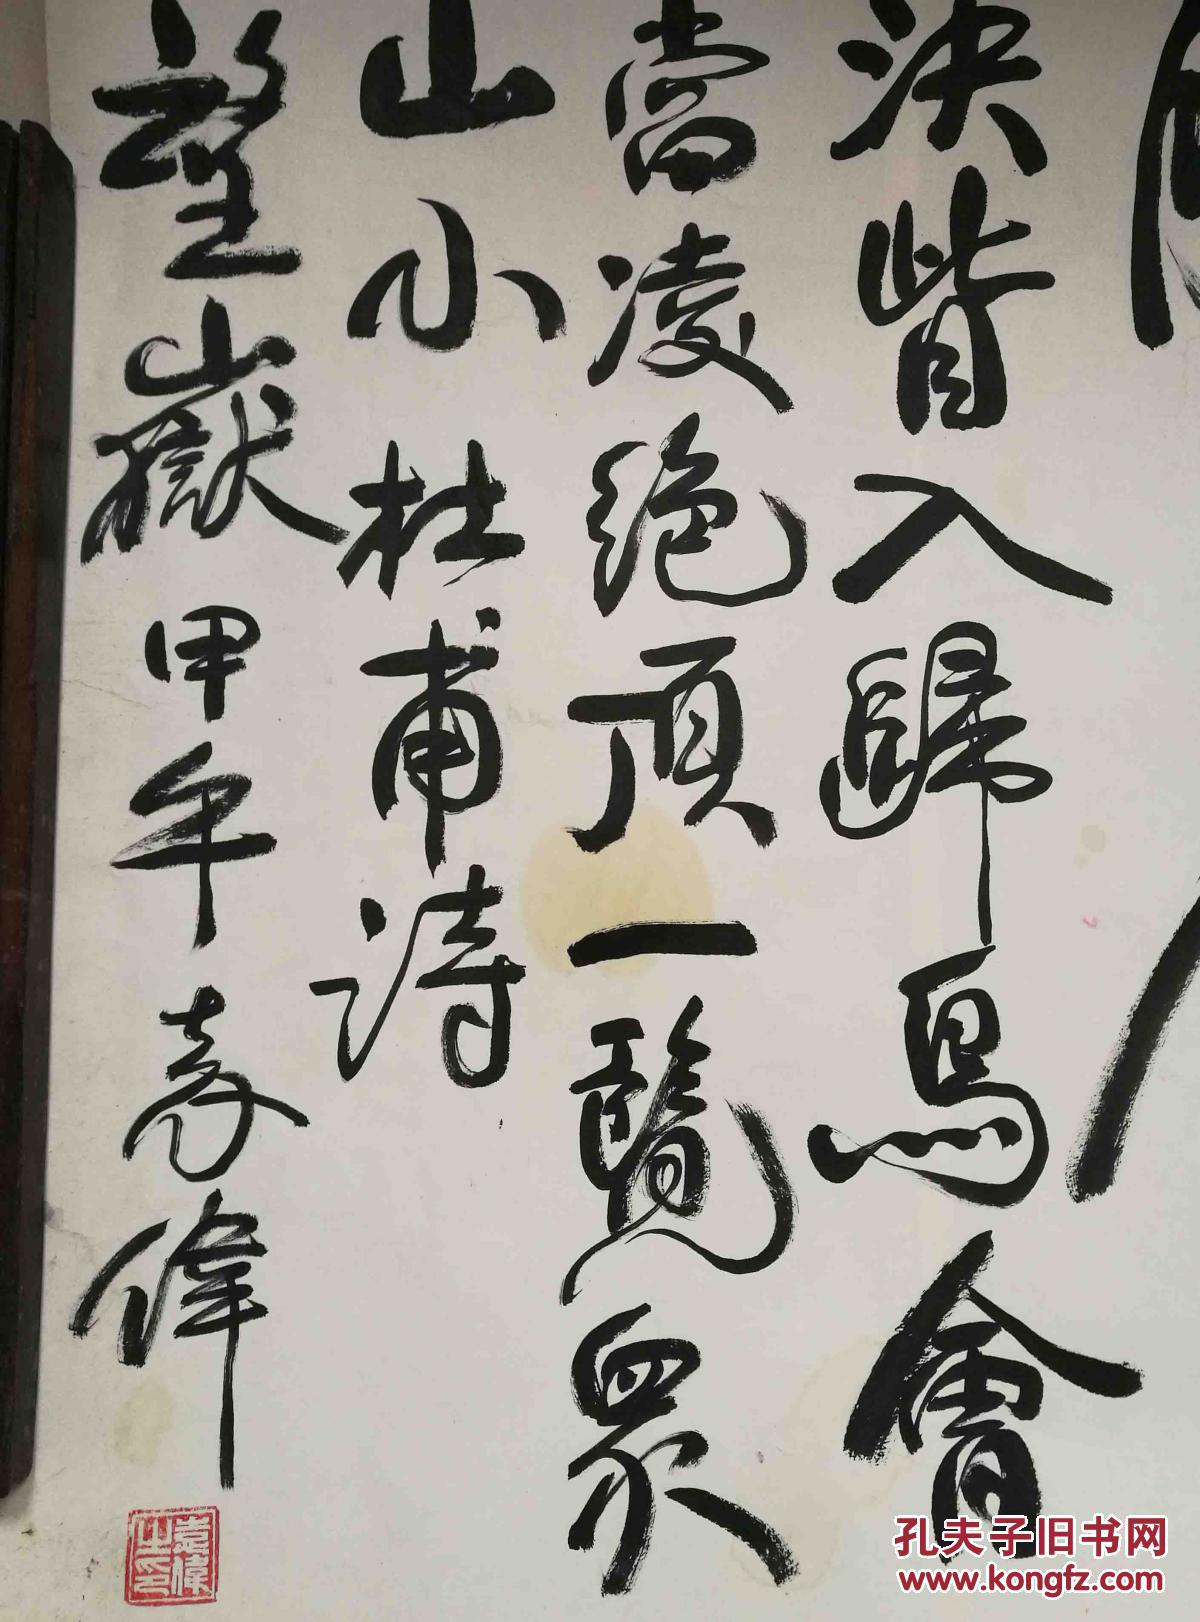 決眥入歸鳥會
當凌絕頂一覽眾
山小 杜甫詩
望嶽 甲午 袁偉
袁偉之印
孔夫子旧书网
www.kongfz.com